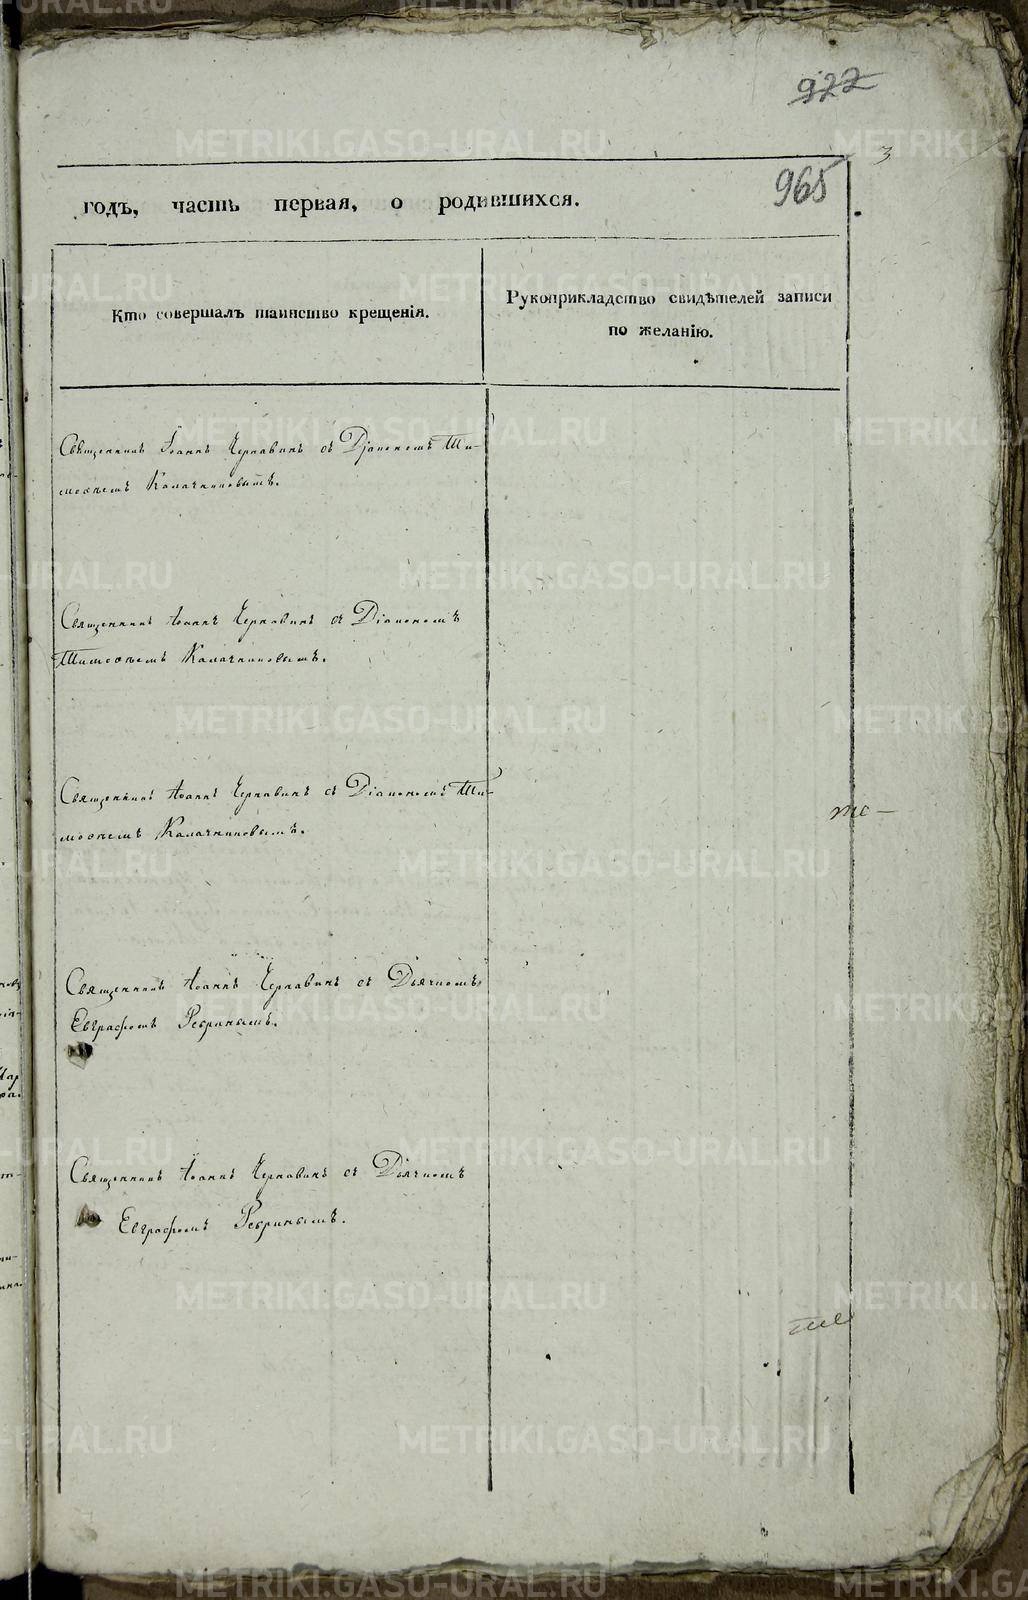 922
3
965
годъ, часть первая, о родившихся.
Кто совершалъ таинство крещенія.
Рукоприкладство свидѣтелей записи
по желанію.
Священникъ Іоаннъ Чернавинъ съ Діакономъ Ти-
мофеемъ Калачниковымъ.
Священникъ Іоаннъ Чернавинъ съ Діакономъ
Тимофеемъ Калачниковымъ.
Священникъ Іоаннъ Чернавинъ съ Діакономъ Ти-
мофеемъ Калачниковымъ.
Священникъ Іоаннъ Чернавинъ съ Дьячкомъ
Евграфомъ Ребринымъ.
Священникъ Іоаннъ Чернавинъ съ Дьячкомъ
Евграфомъ Ребринымъ.
METRIKI.GASO-URAL.RU